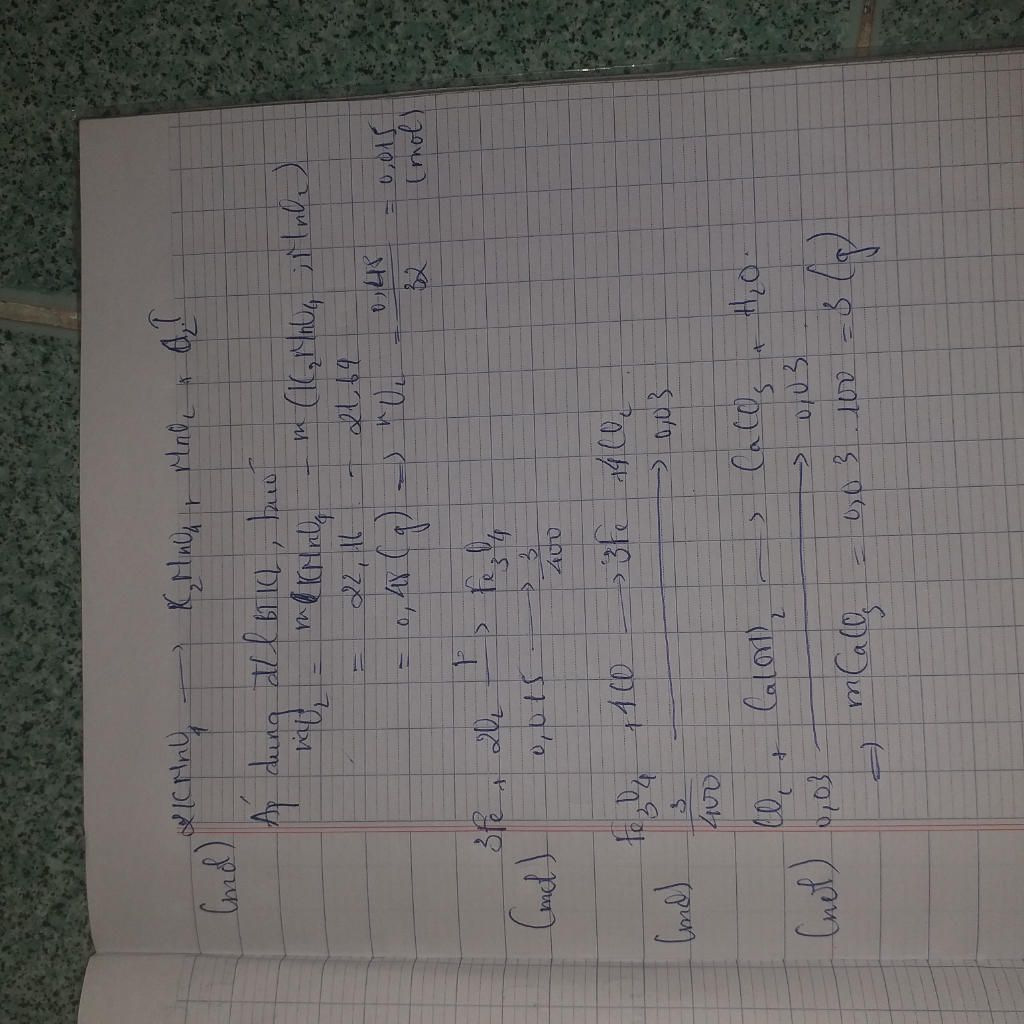 2KMnO4 → K2MnO4 + MnO2 + O2↑
(mol)
Áp dụng ĐLBTKL, have
mO2 = mKMnO4 - m(K2MnO4 ; MnO2)
= 22,16 - 21,64
= 0,48(g) => nO2 = 0,48/32 = 0,015 (mol)
3Fe + 2O2 → Fe3O4
(mol) 0,015 → 3/400
Fe3O4 + 4CO → 3Fe + 4CO2
(mol) 3/400 → 0,03
CO2 + Ca(OH)2 → CaCO3 + H2O.
(mol) 0,03 → 0,03
=> mCaCO3 = 0,03.100 = 3 (g)